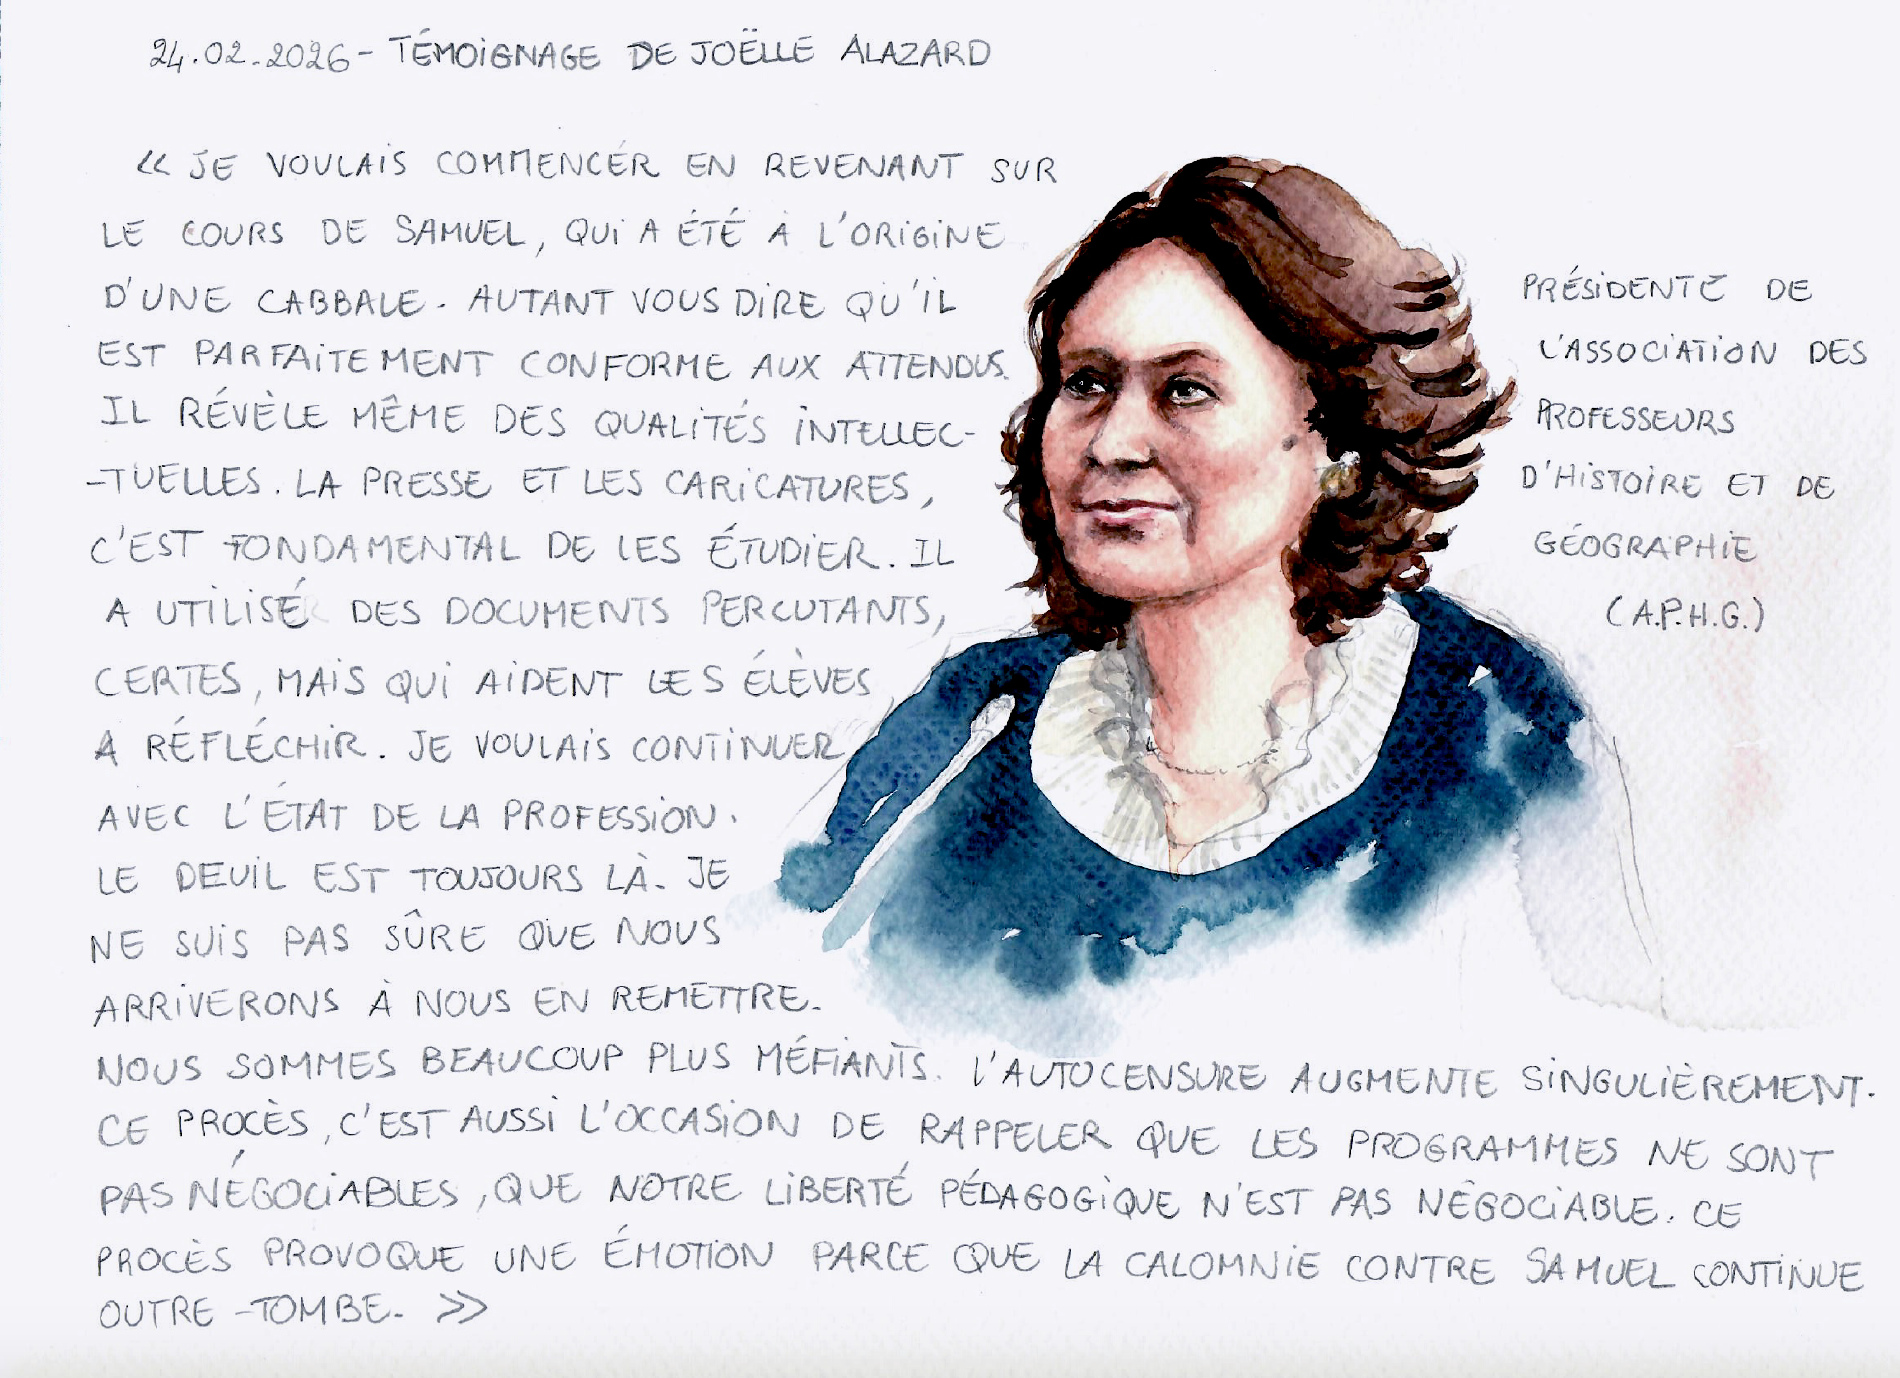 24.02.2026 - TÉMOIGNAGE DE JOËLLE ALAZARD
« JE VOULAIS COMMENCÉR EN REVENANT SUR
LE COURS DE SAMUEL, QUI A ÉTÉ À L'ORIGINE
D'UNE CABBALE. AUTANT VOUS DIRE QU'IL
EST PARFAITEMENT CONFORME AUX ATTENDUS.
IL RÉVÈLE MÊME DES QUALITÉS INTELLEC-
-TUELLES. LA PRESSE ET LES CARICATURES,
C'EST FONDAMENTAL DE LES ÉTUDIER. IL
A UTILISÉ DES DOCUMENTS PERCUTANTS,
CERTES, MAIS QUI AIDENT LES ÉLÈVES
A RÉFLÉCHIR. JE VOULAIS CONTINUER
AVEC L'ÉTAT DE LA PROFESSION.
LE DEUIL EST TOUJOURS LÀ. JE
NE SUIS PAS SÛRE QUE NOUS
ARRIVERONS À NOUS EN REMETTRE.
NOUS SOMMES BEAUCOUP PLUS MÉFIANTS. L'AUTOCENSURE AUGMENTE SINGULIÈREMENT.
CE PROCÈS, C'EST AUSSI L'OCCASION DE RAPPELER QUE LES PROGRAMMES NE SONT
PAS NÉGOCIABLES, QUE NOTRE LIBERTÉ PÉDAGOGIQUE N'EST PAS NÉGOCIABLE. CE
PROCÈS PROVOQUE UNE ÉMOTION PARCE QUE LA CALOMNIE CONTRE SAMUEL CONTINUE
OUTRE-TOMBE. »
PRÉSIDENTE DE
L'ASSOCIATION DES
PROFESSEURS
D'HISTOIRE ET DE
GÉOGRAPHIE
(A.P.H.G.)